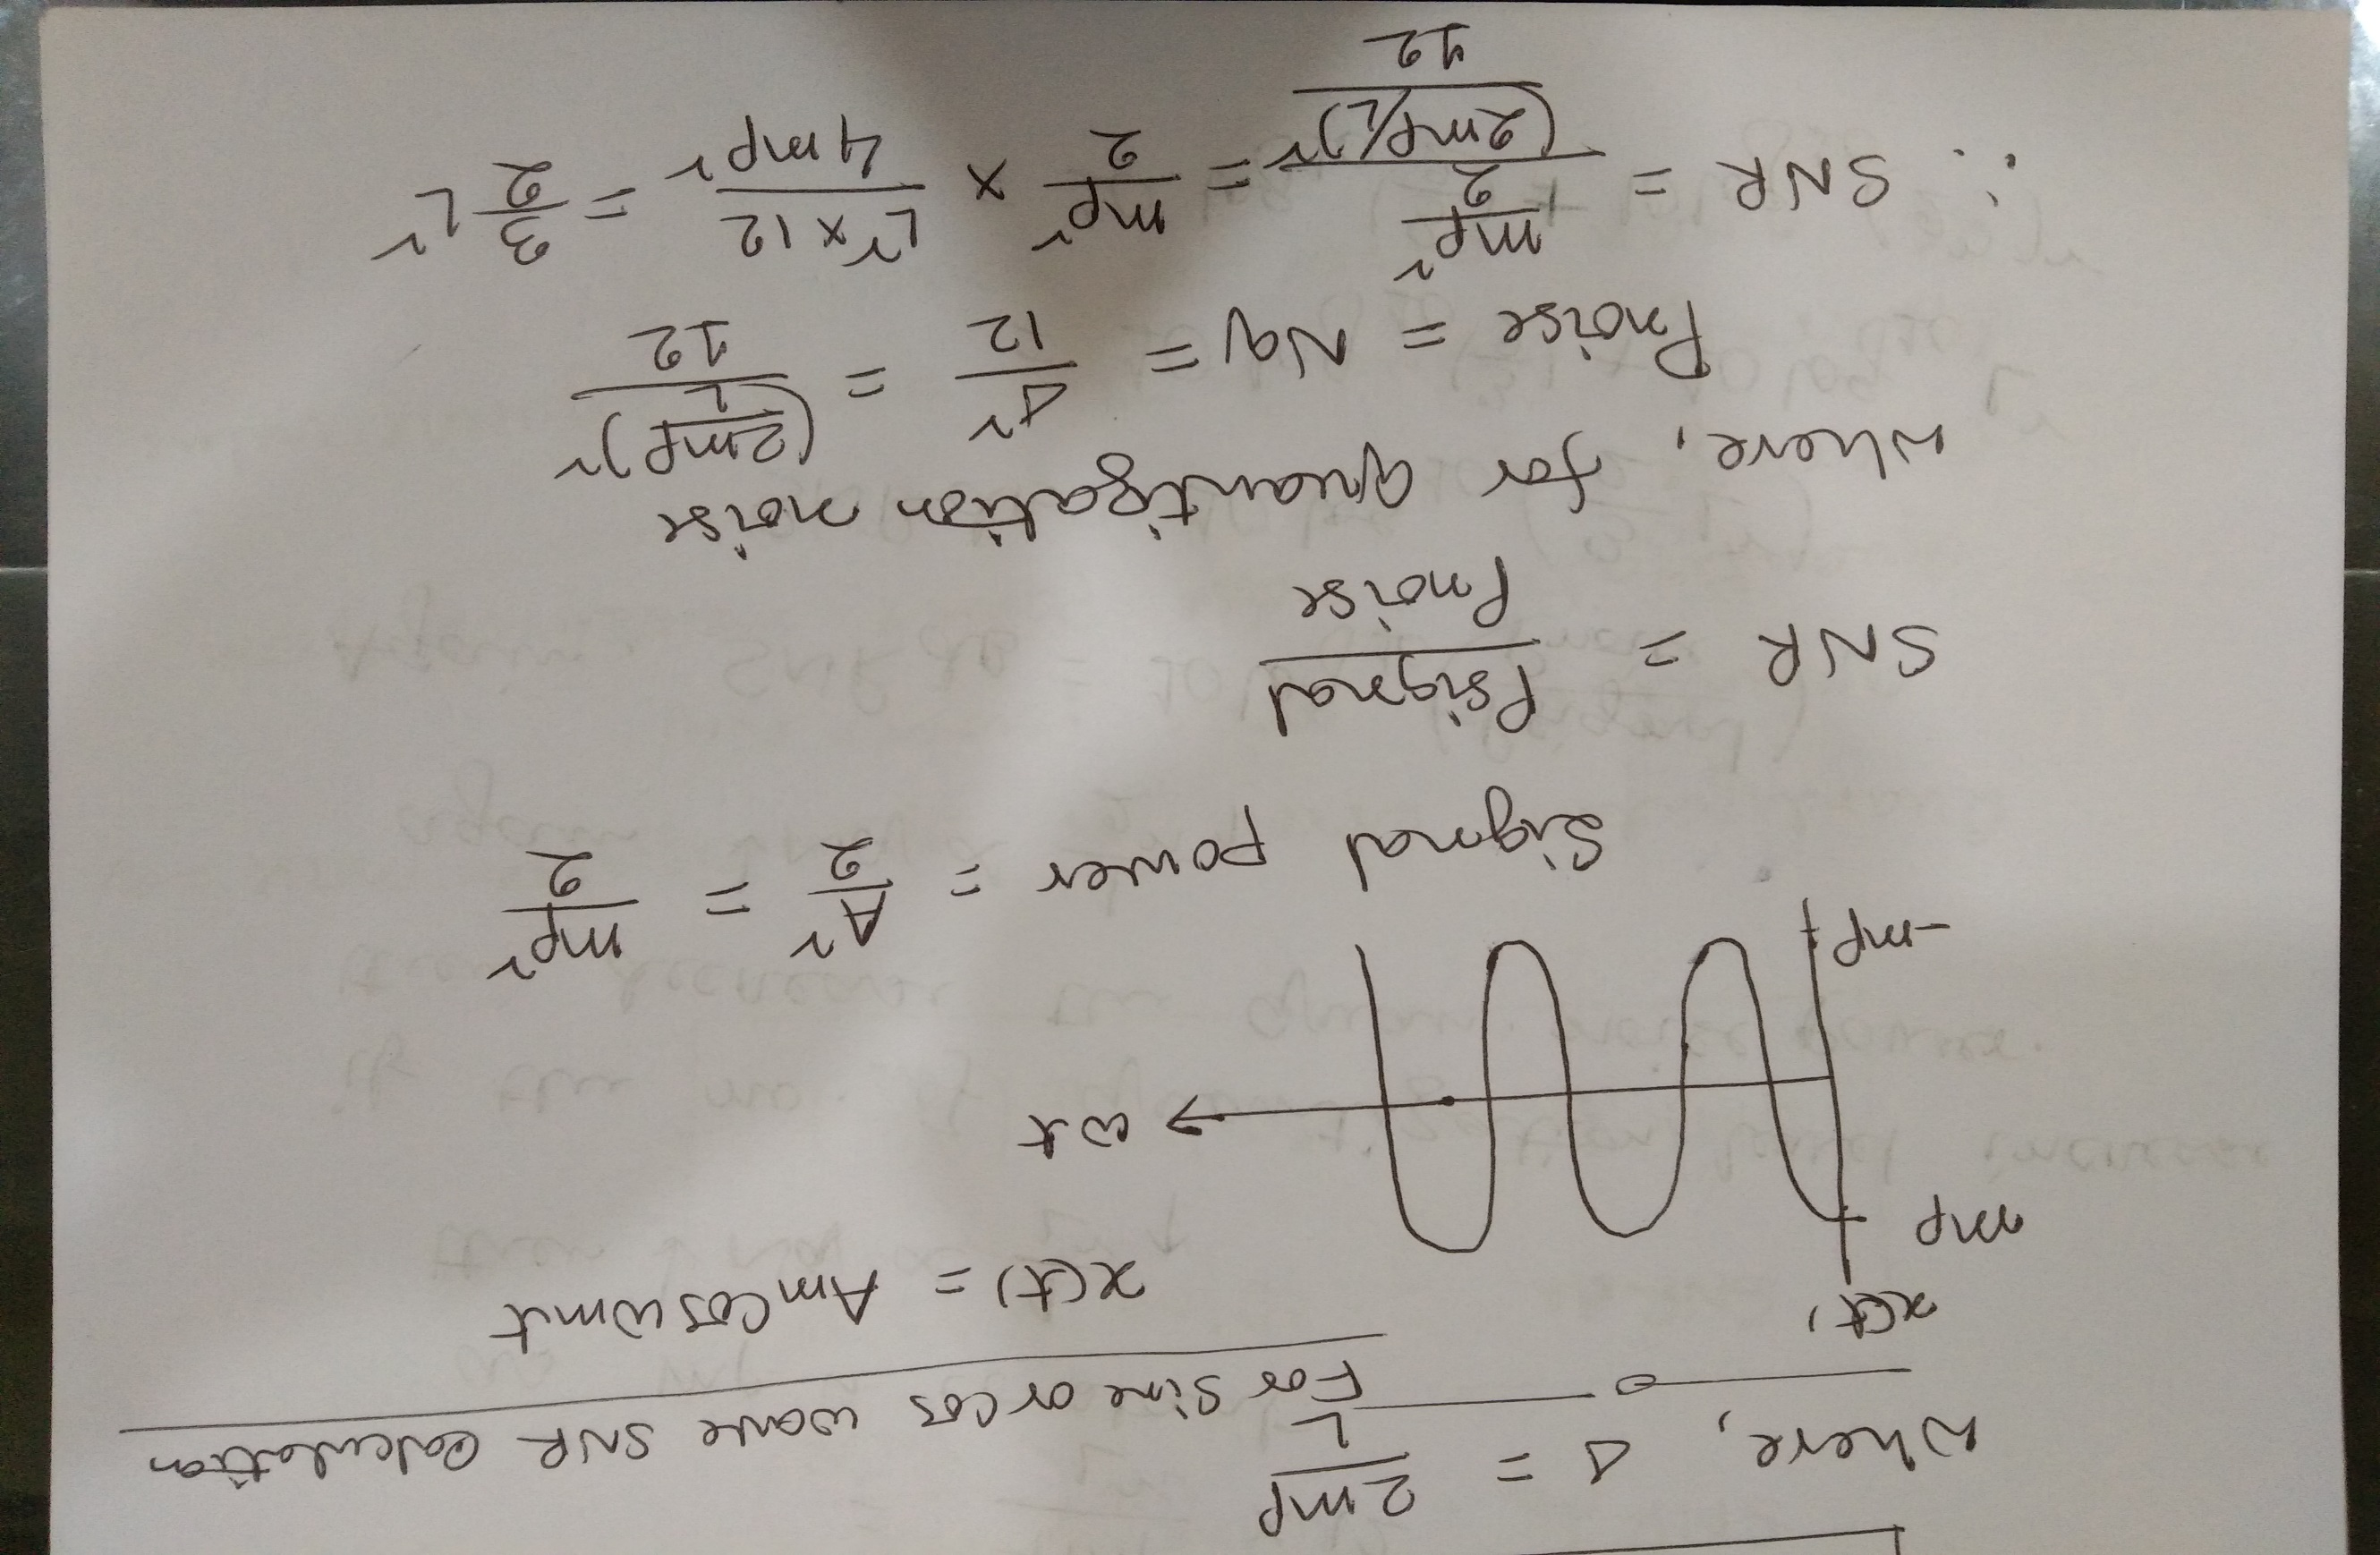 where, Δ = 2mp/L
For Sine or Cos wave SNR Calculation
x(t)
x(t) = Am Cos wmt
mp
ωt
-mp
Signal power = A²/2 = mp²/2
SNR = Psignal/Pnoise
where, for quantization noise
Pnoise = Nq = Δ²/12 = (2mp/L)²/12
∴ SNR = (mp²/2)/((2mp/L)²/12) = mp²/2 × L²×12/4mp² = 3/2 L²